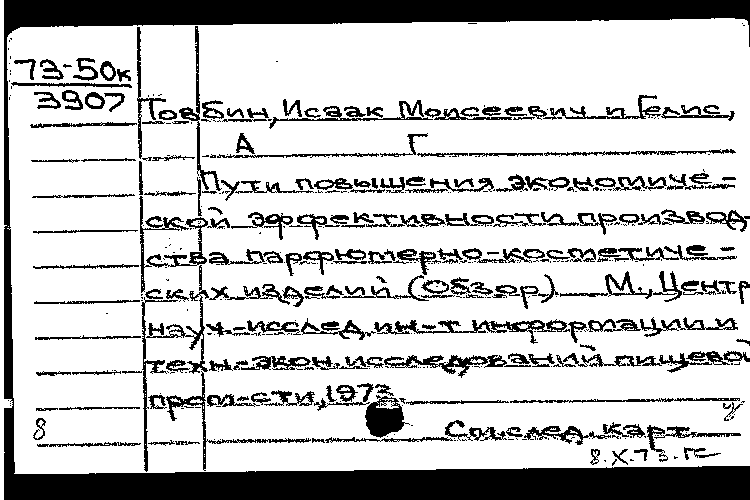 73-50к
3907
Товбин, Исаак Моисеевич и Гелис,
А Г
Пути повышения экономиче-
ской эффективности производ-
ства парфюмерно-косметиче-
ских изделий (Обзор) М., Центр
науч.-исслед. ин-т информации и
техн.-экон. исследований пищевой
пром-сти, 1973
8
См. след. карт
8.X.73.